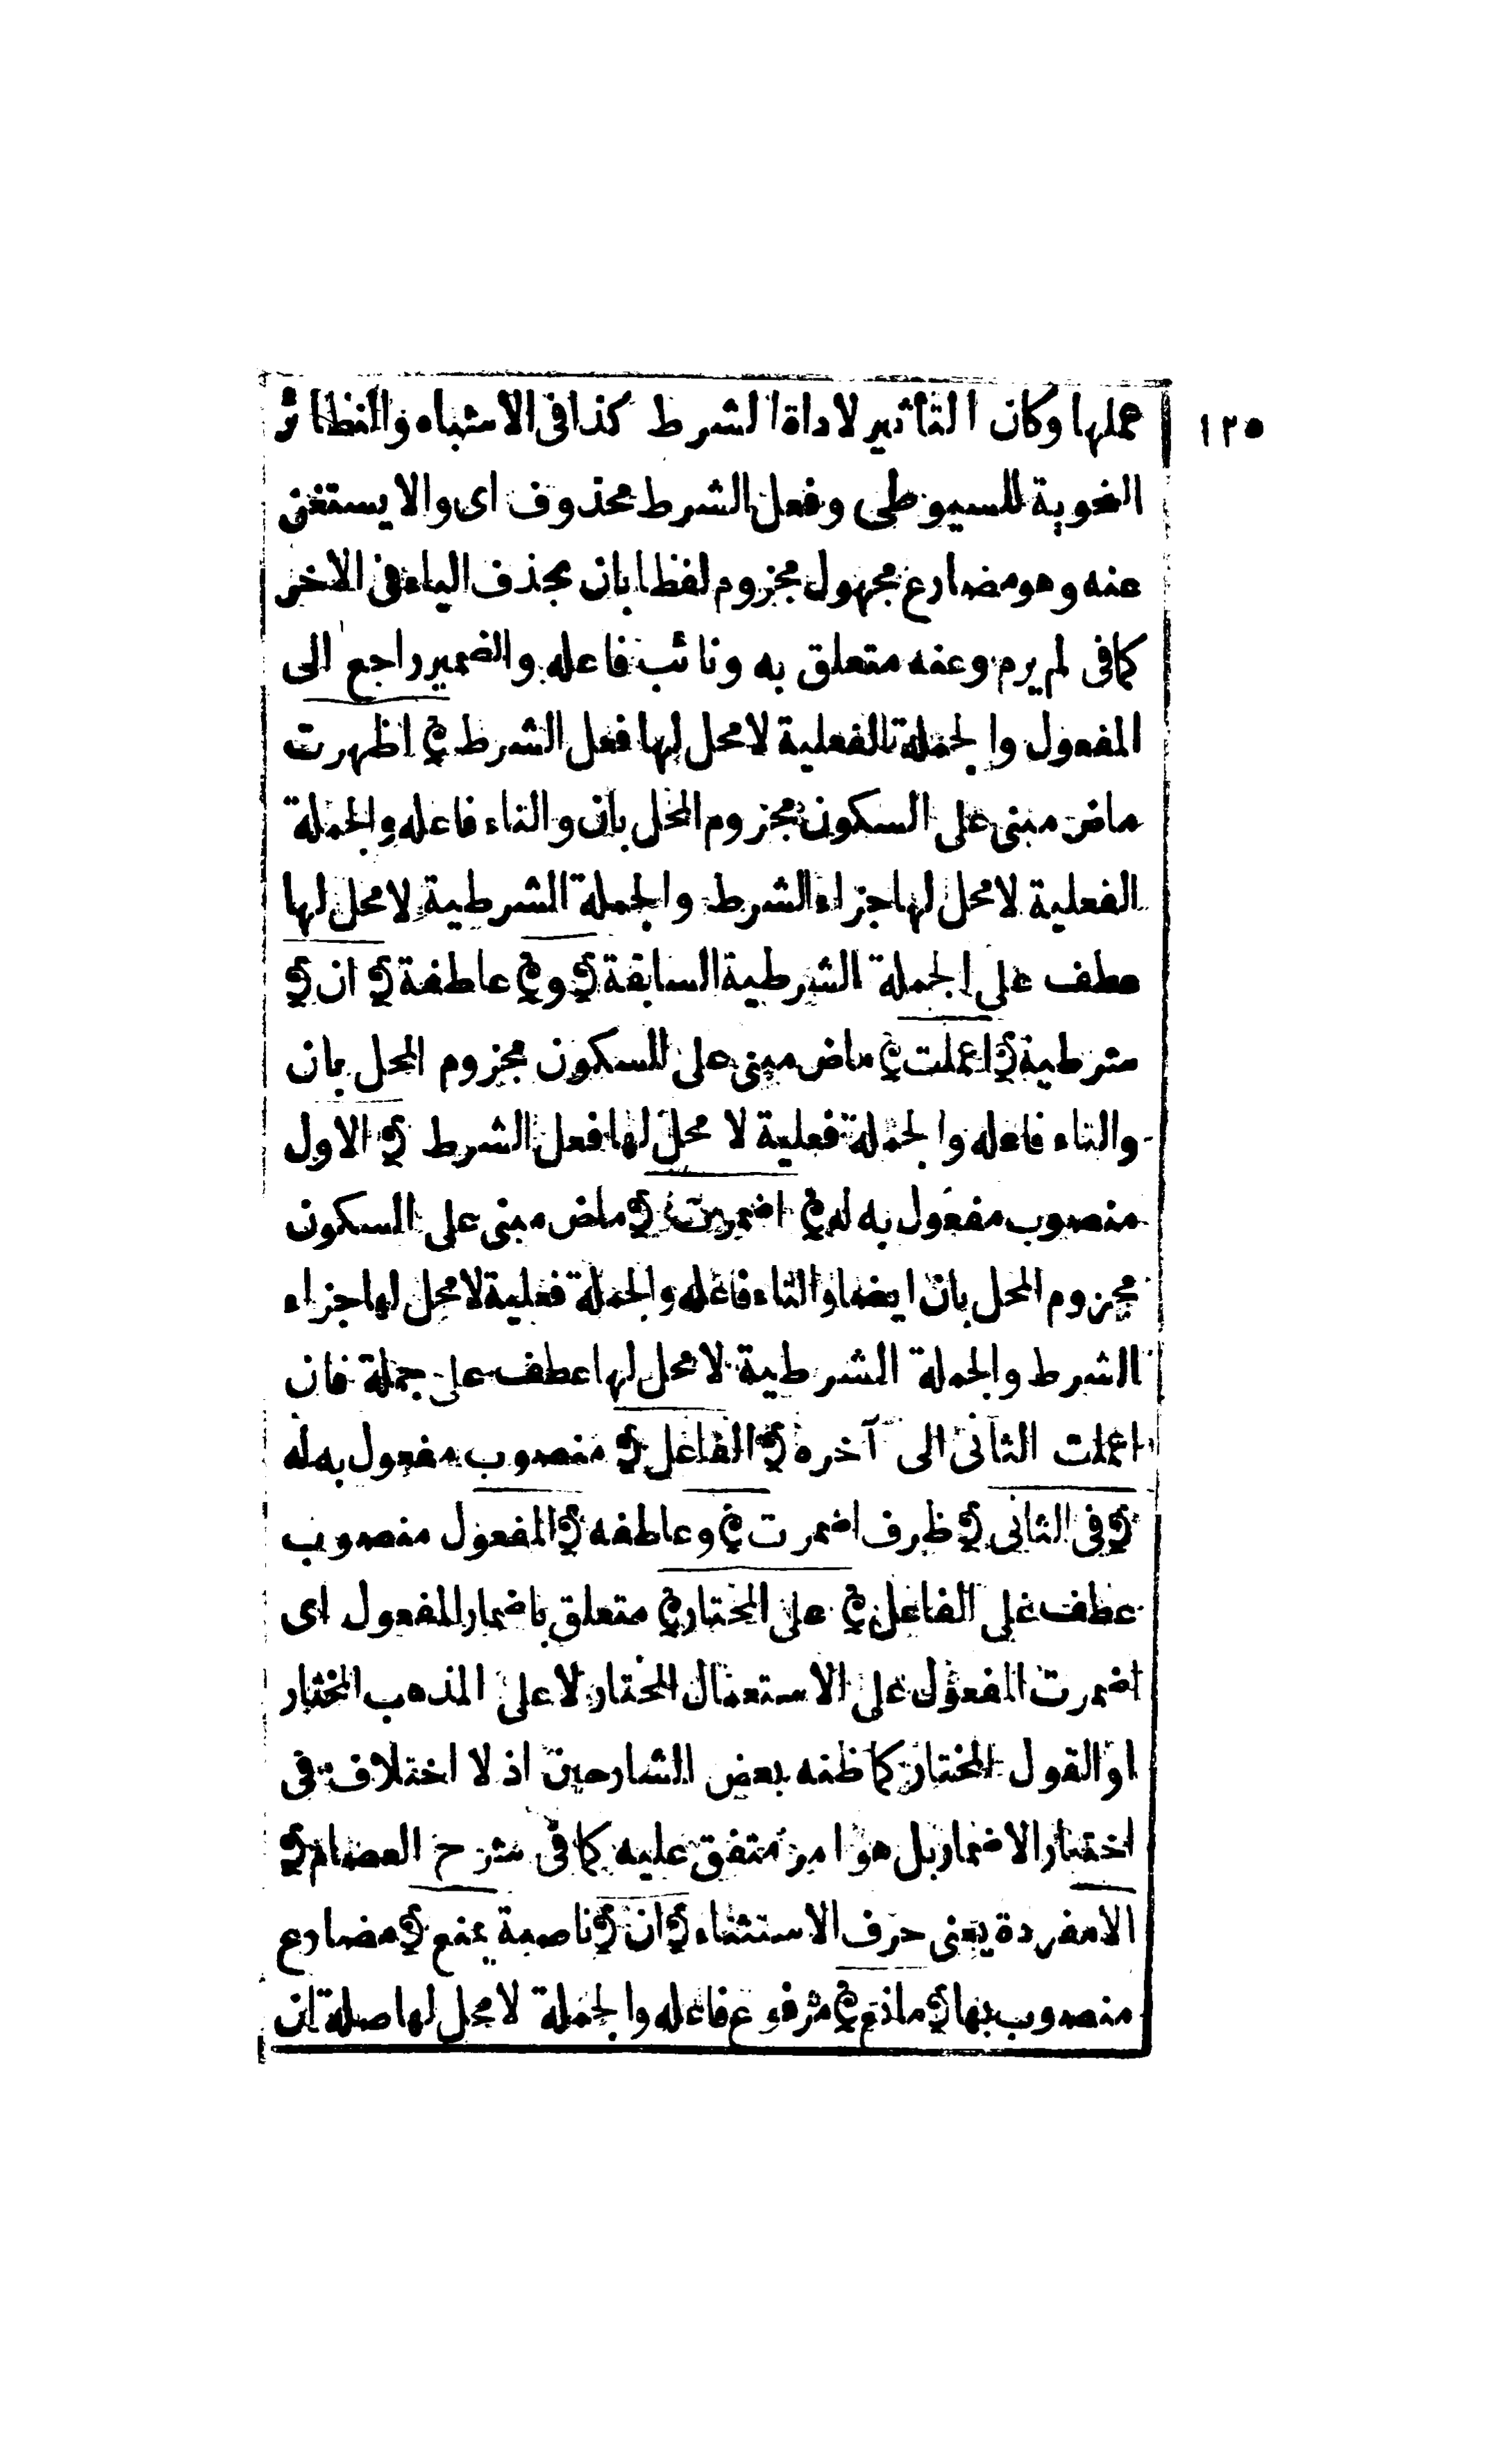 ١٢٥
عملها وكان التأثير لاداة الشرط كذا فى الاشباه والنظائر
النحوية للسيوطى وفعل الشرط محذوف اى والا يستغن
عنه وهو مضارع مجهول مجزوم لفظا بان بحذف الياء فى الاخر
كما فى لم يرم وعنه متعلق به ونائب فاعله والضمير راجع الى
المفعول والجملة الفعلية لا محل لها فعل الشرط ﴿ اظهرت
ماض مبنى على السكون مجزوم المحل بان والتاء فاعله والجملة
الفعلية لا محل لها جزاء الشرط والجملة الشرطية لا محل لها
عطف على الجملة الشرطية السابقة ﴿ و ﴾ عاطفة ﴿ ان ﴾
شرطية ﴿ اعملت ﴾ ماض مبنى على السكون مجزوم المحل بان
والتاء فاعله والجملة فعلية لا محل لها فعل الشرط ﴿ الاول
منصوب مفعول به له ﴿ اضمرت ﴾ ماض مبنى على السكون
مجزوم المحل بان ايضا والتاء فاعله والجملة فعلية لا محل لها جزاء
الشرط والجملة الشرطية لا محل لها عطف على جملة فان
اعملت الثانى الى آخره ﴿ الفاعل ﴾ منصوب مفعول به له
﴿ فى الثانى ﴾ ظرف اضمرت ﴿ و عاطفه ﴿ المفعول منصوب
عطف على الفاعل ﴿ على المختار ﴾ متعلق باضمار المفعول اى
اضمرت المفعول على الاستعمال المختار لا على المذهب المختار
او القول المختار كما ظنه بعض الشارحين اذ لا اختلاف فى
اختيار الاضمار بل هو امر متفق عليه كما فى شرح العصام ﴿
الا مفردة يعنى حرف الاستثناء ﴿ ان ﴾ ناصبة يمنع ﴾ مضارع
منصوب بها ﴿ مانع ﴾ مرفوع فاعله والجملة لا محل لها صلة ان